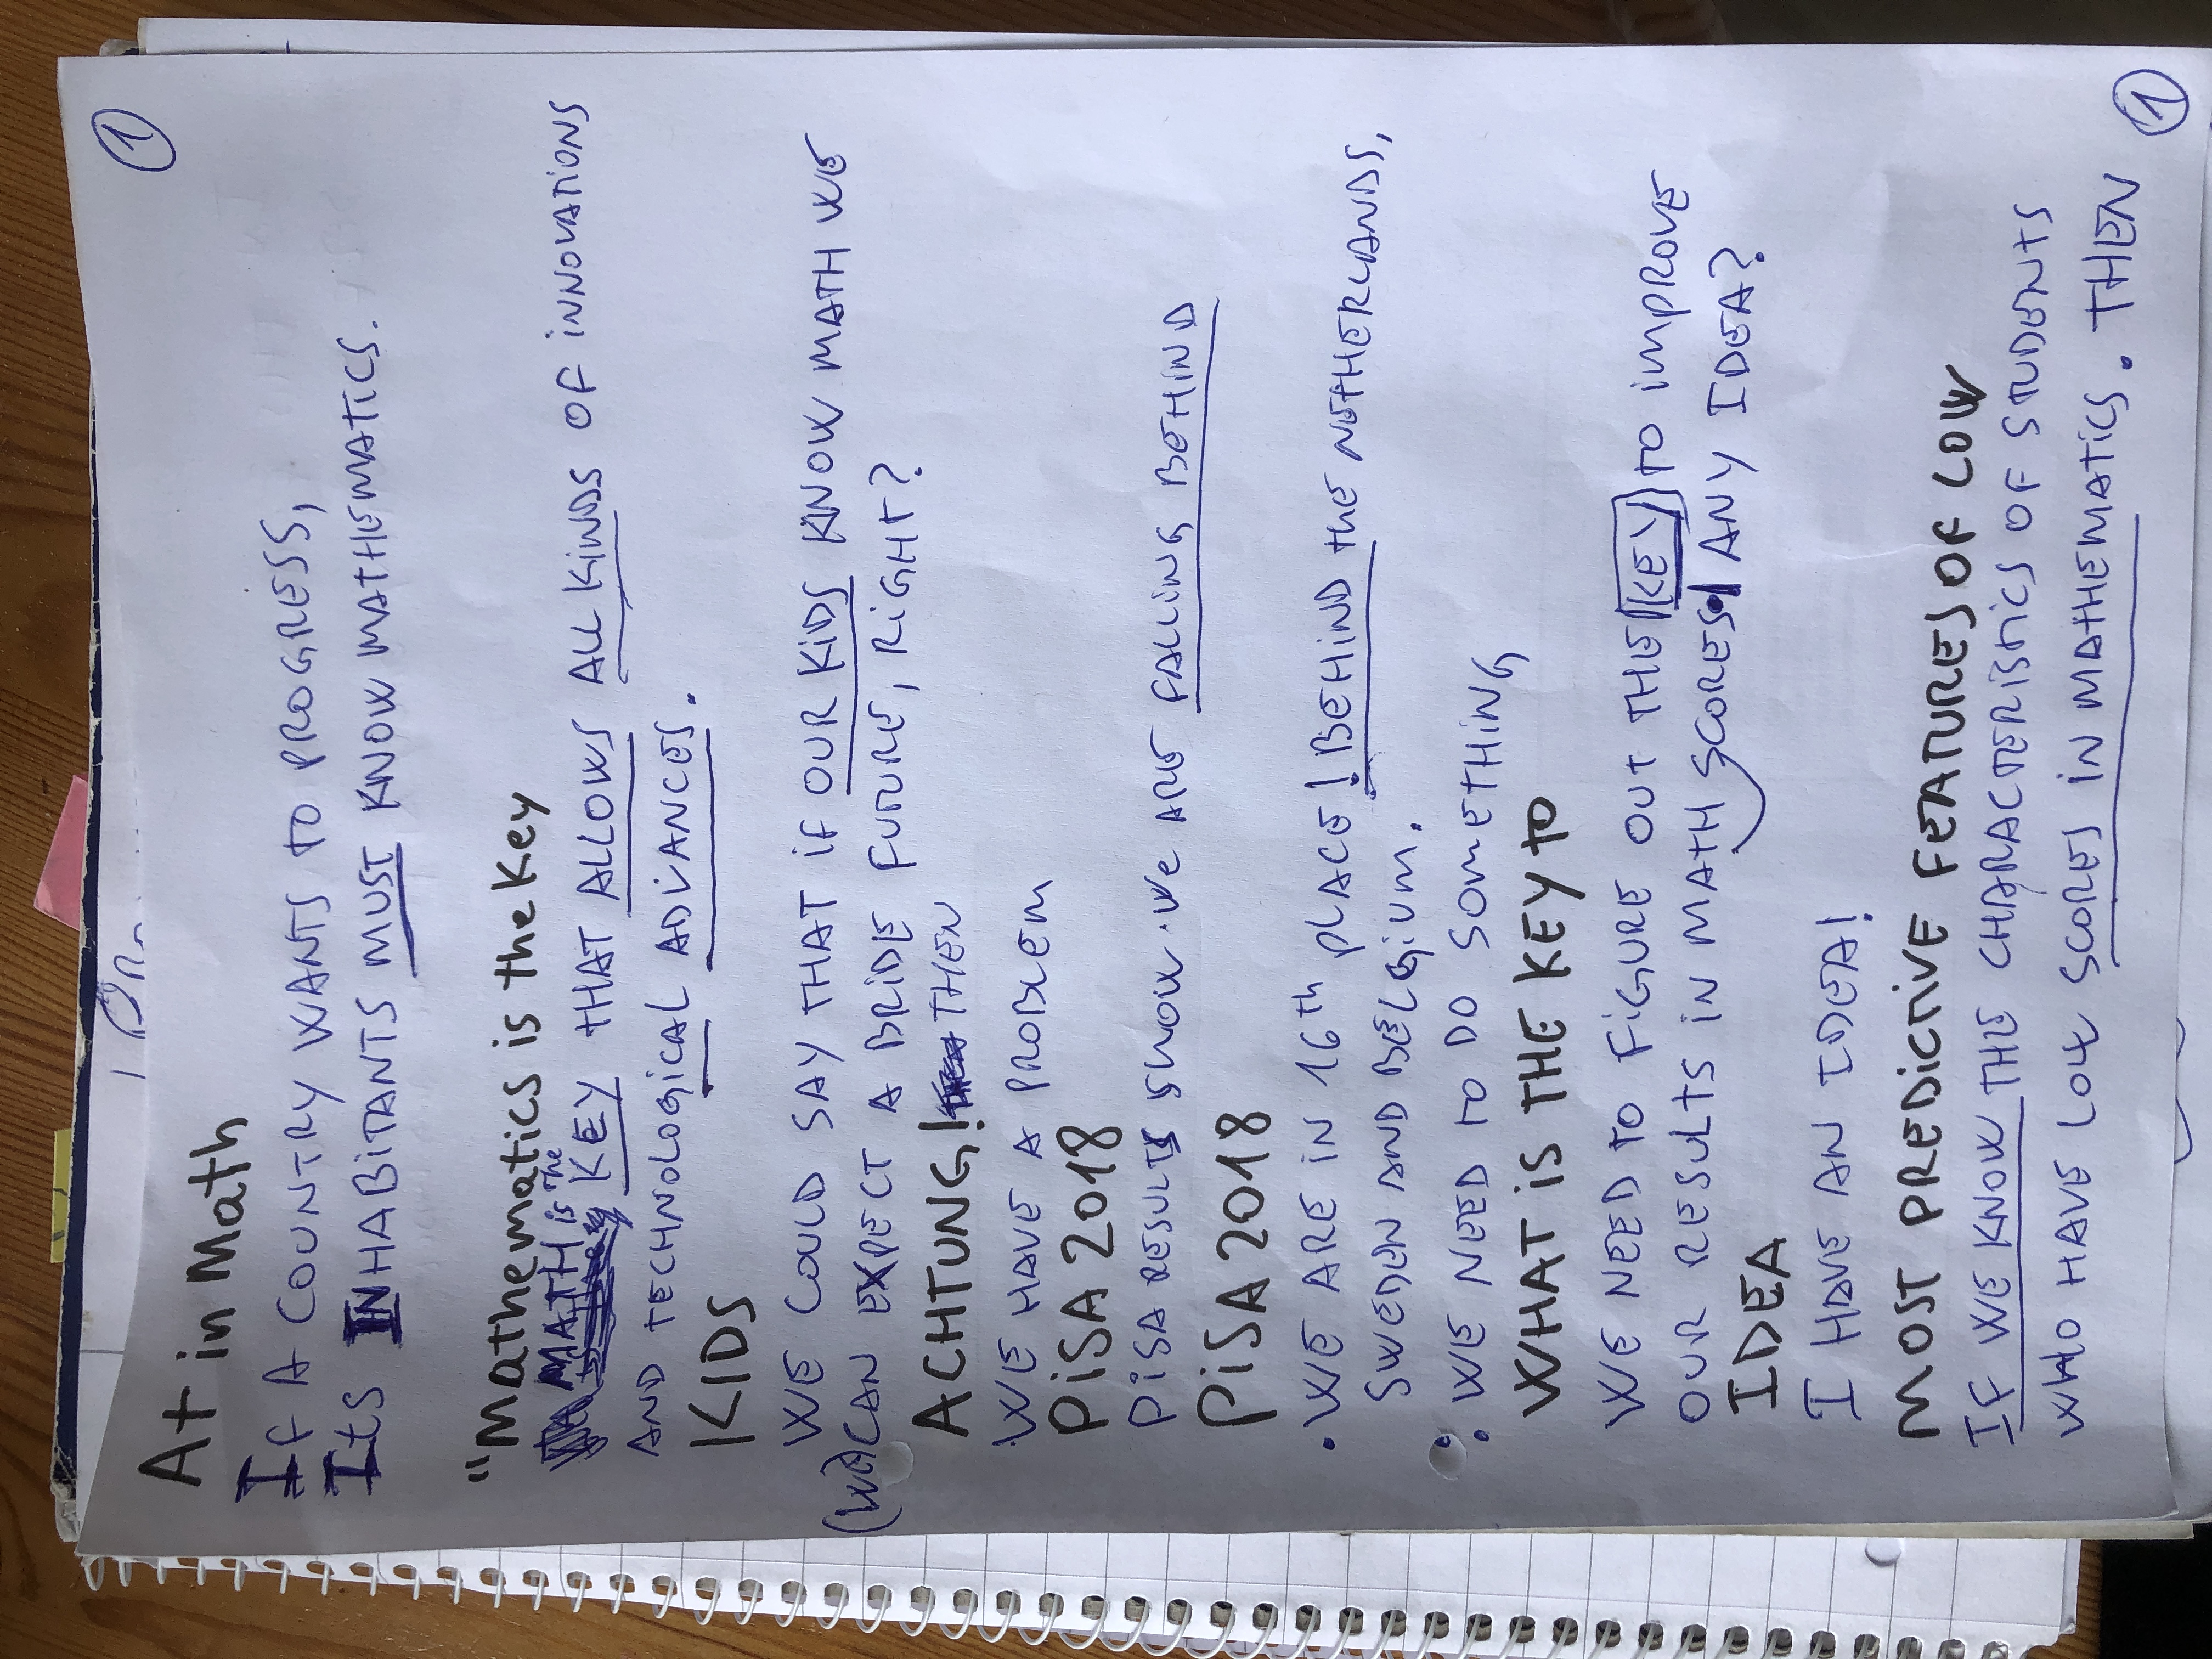 1
A+ in Math
If A COUNTRY WANTS TO PROGRESS,
Its INHABITANTS MUST KNOW MATHEMATICS.
"Mathematics is the Key
MATH is The
KEY THAT ALLOWS ALL KINDS OF INNOVATIONS
AND TECHNOLOGICAL ADVANCES.
KIDS
WE COULD SAY THAT IF OUR KIDS KNOW MATH WE
(We) CAN EXPECT A BRIDE FUTURE, RIGHT?
ACHTUNG! THEN
WE HAVE A PROBLEM
PiSA 2018
PiSA RESULTS SHOW We ARE FALLING BEHIND
PiSA 2018
• WE ARE IN 16th PLACE! BEHIND the NETHERLANDS,
SWEDEN AND BELGIUM.
: WE NEED TO DO SOMETHING
WHAT IS THE KEY TO
WE NEED TO FIGURE OUT THE KEY TO IMPROVE
OUR RESULTS IN MATH SCORES. ANY IDEA?
IDEA
I HAVE AN IDEA!
MOST PREDICTIVE FEATURES OF LOW
IF WE KNOW THE CHARACTERISTICS OF STUDENTS
WHO HAVE LOW SCORES IN MATHEMATICS. THEN
1